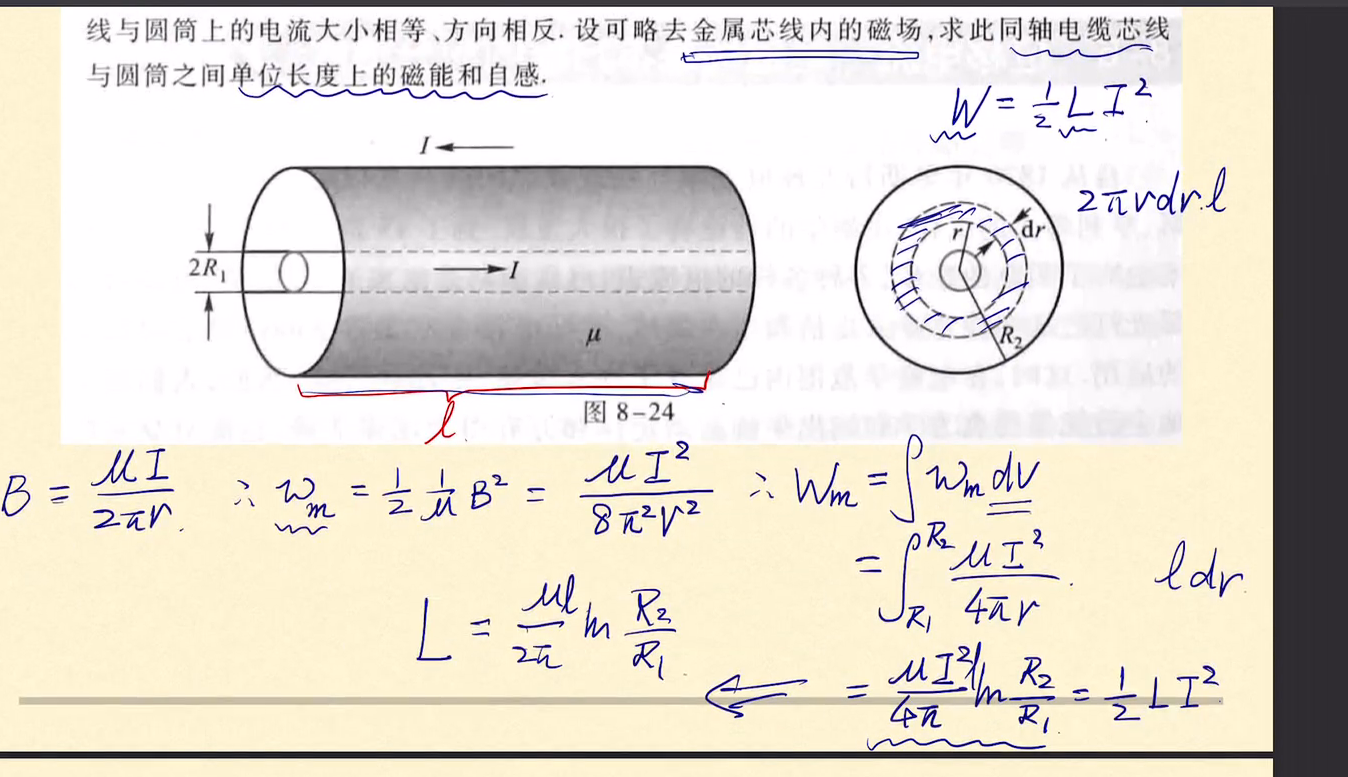 线与圆筒上的电流大小相等、方向相反. 设可略去金属芯线内的磁场,求此同轴电缆芯线
与圆筒之间单位长度上的磁能和自感.
W = 1/2 L I²
I
2πrdr.l
r
dr
2R₁
I
μ
R₂
图 8-24
l
B = μI/2πr ∴ wₘ = 1/2 1/μ B² = μI²/8π²r² ∴ Wₘ = ∫ wₘ dV
= ∫_{R₁}^{R₂} μI²/4πr ldr
L = μl/2π ln R₂/R₁
= μI²l/4π ln R₂/R₁ = 1/2 L I²